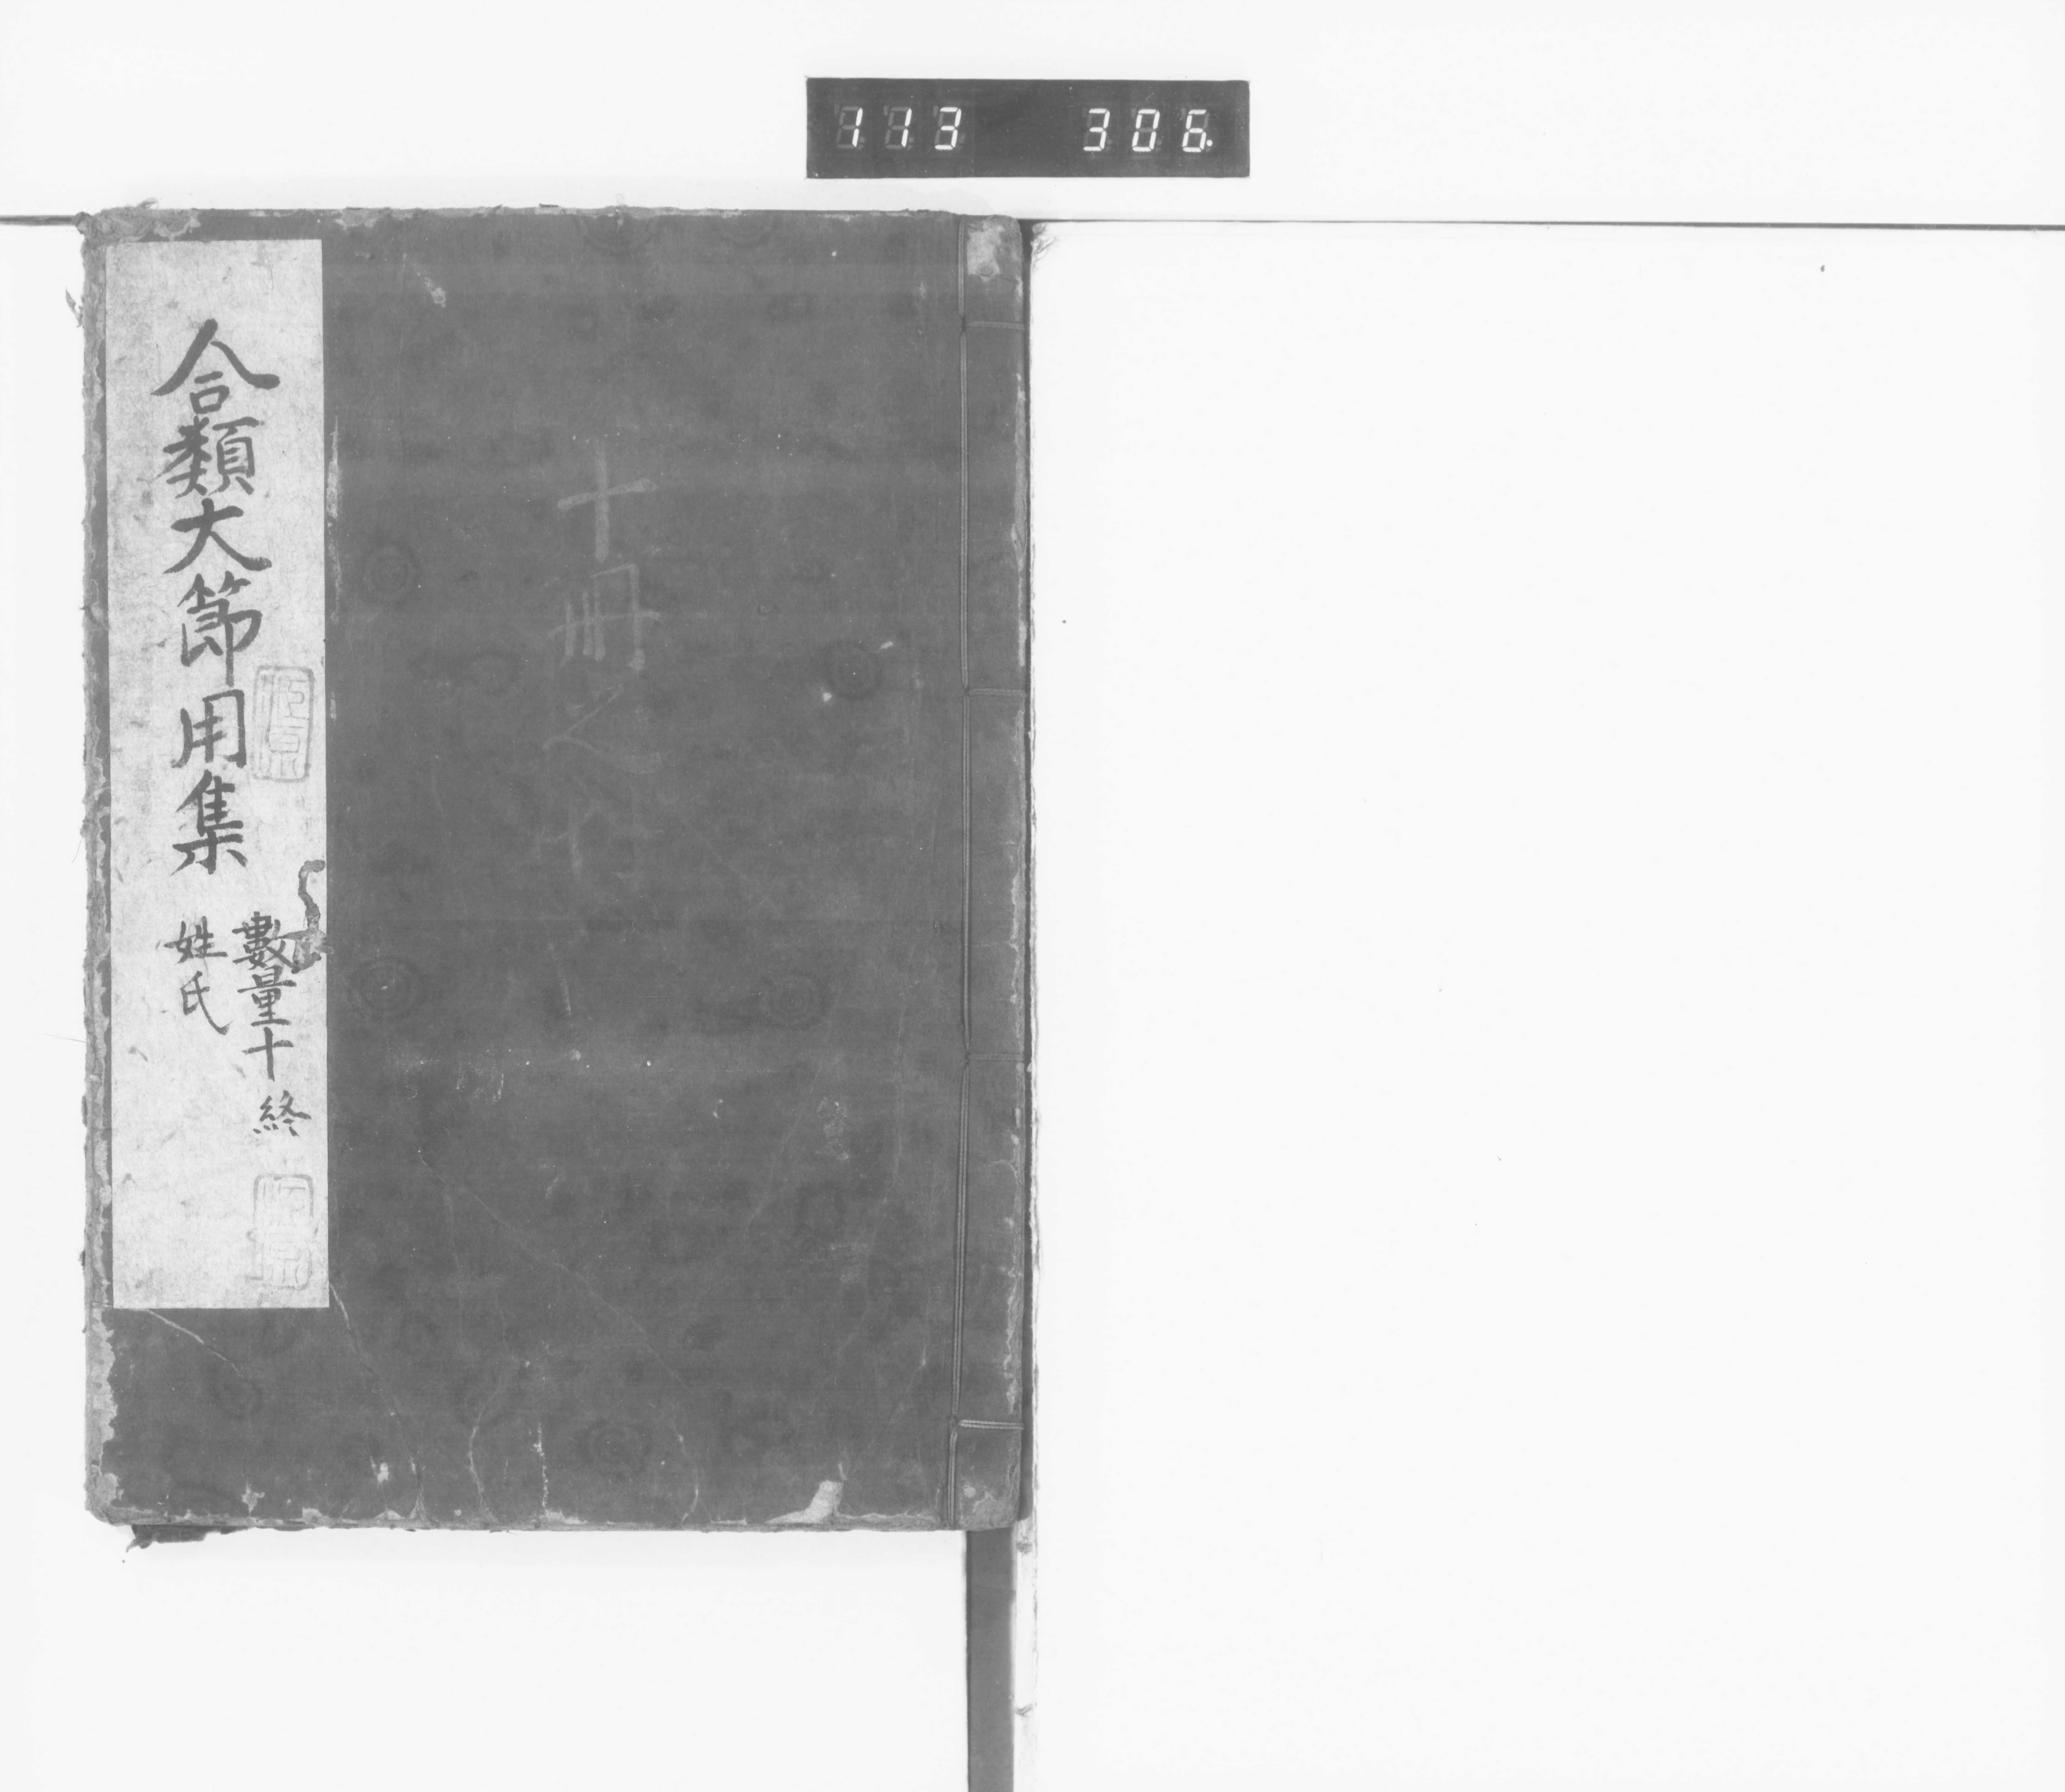 113 306.
十冊之内
合類大節用集
數量十 終
姓氏